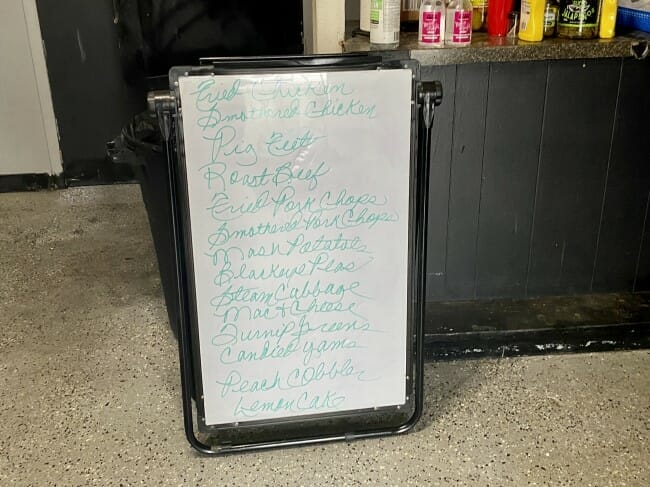 Fried Chicken
Smothered Chicken
Pig Feet
Roast Beef
Fried Pork Chops
Smothered Pork Chops
Mash Patatoes
Blackeye Peas
Steam Cabbage
Mac & Cheese
Turnip Greens
Candied yams
Peach Cobbler
Lemon Cake